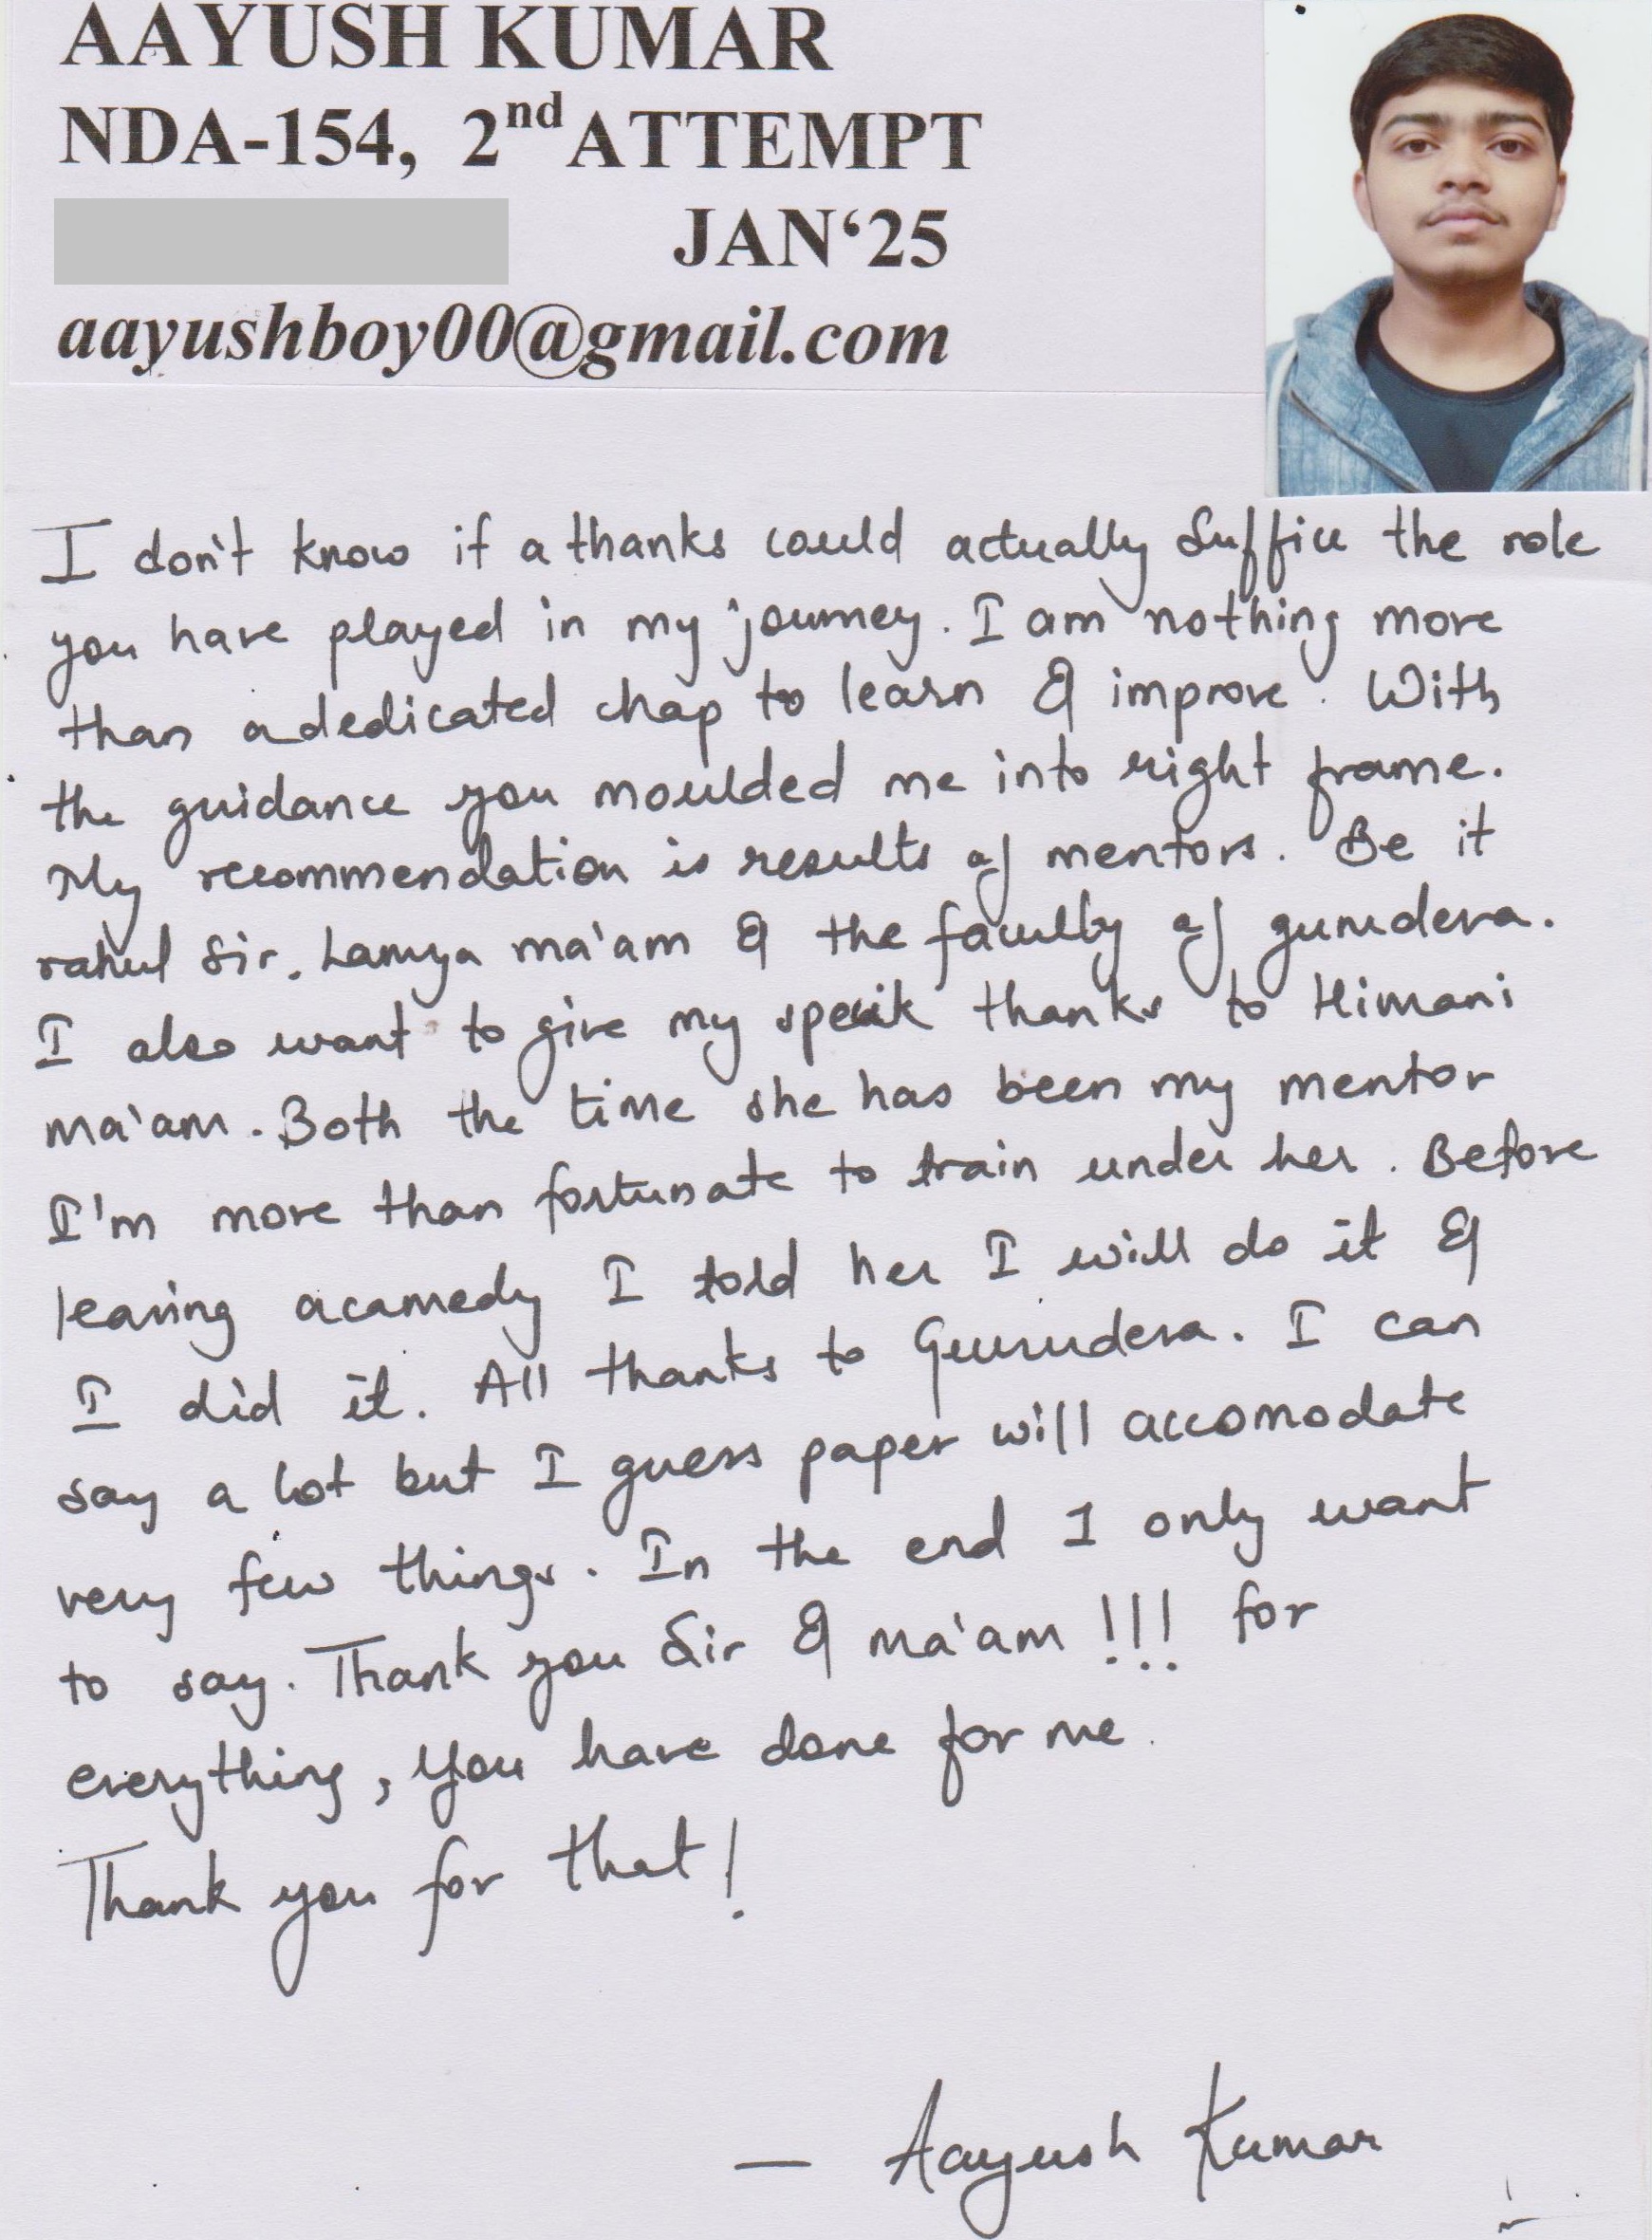 AAYUSH KUMAR
NDA-154, 2nd ATTEMPT
JAN‘25
aayushboy00@gmail.com
I don't know if a thanks could actually suffice the role
you have played in my journey. I am nothing more
than a dedicated chap to learn & improve. With
the guidance you moulded me into right frame.
My recommendation is results of mentors. Be it
rahul Sir, Lamya ma'am & the faculty of gurudeva.
I also want to give my thanks to Himani
ma'am. Both the time she has been my mentor
I'm more than fortunate to train under her. Before
leaving acamedy I told her I will do it &
I did it. All thanks to Gurudeva. I can
say a lot but I guess paper will accomodate
very few things. In the end I only want
to say. Thank you Sir & ma'am !!! for
everything, you have done for me.
Thank you for that!
— Aayush Kumar